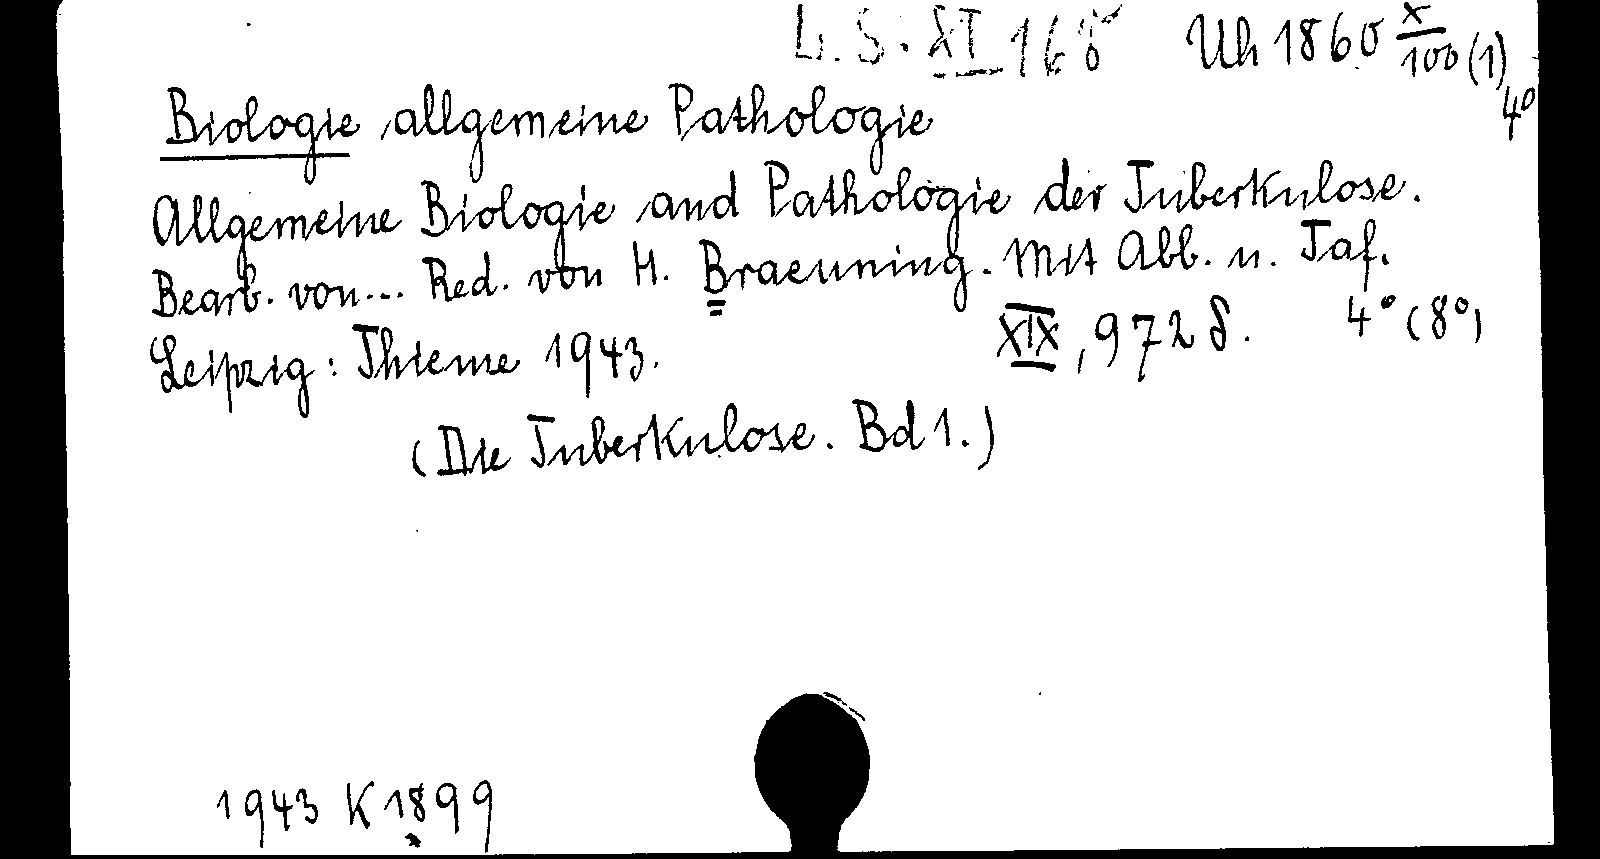 L. S. XI 168 Uh 1860 x/100 (1) 4°
Biologie, allgemeine Pathologie
Allgemeine Biologie und Pathologie der Tuberkulose.
Bearb. von... Red. von H. Braeuning. Mit Abb. u. Taf.
Leipzig: Thieme 1943. XIX, 972 S. 4° (8°)
(Die Tuberkulose. Bd 1.)
1943 K 1899